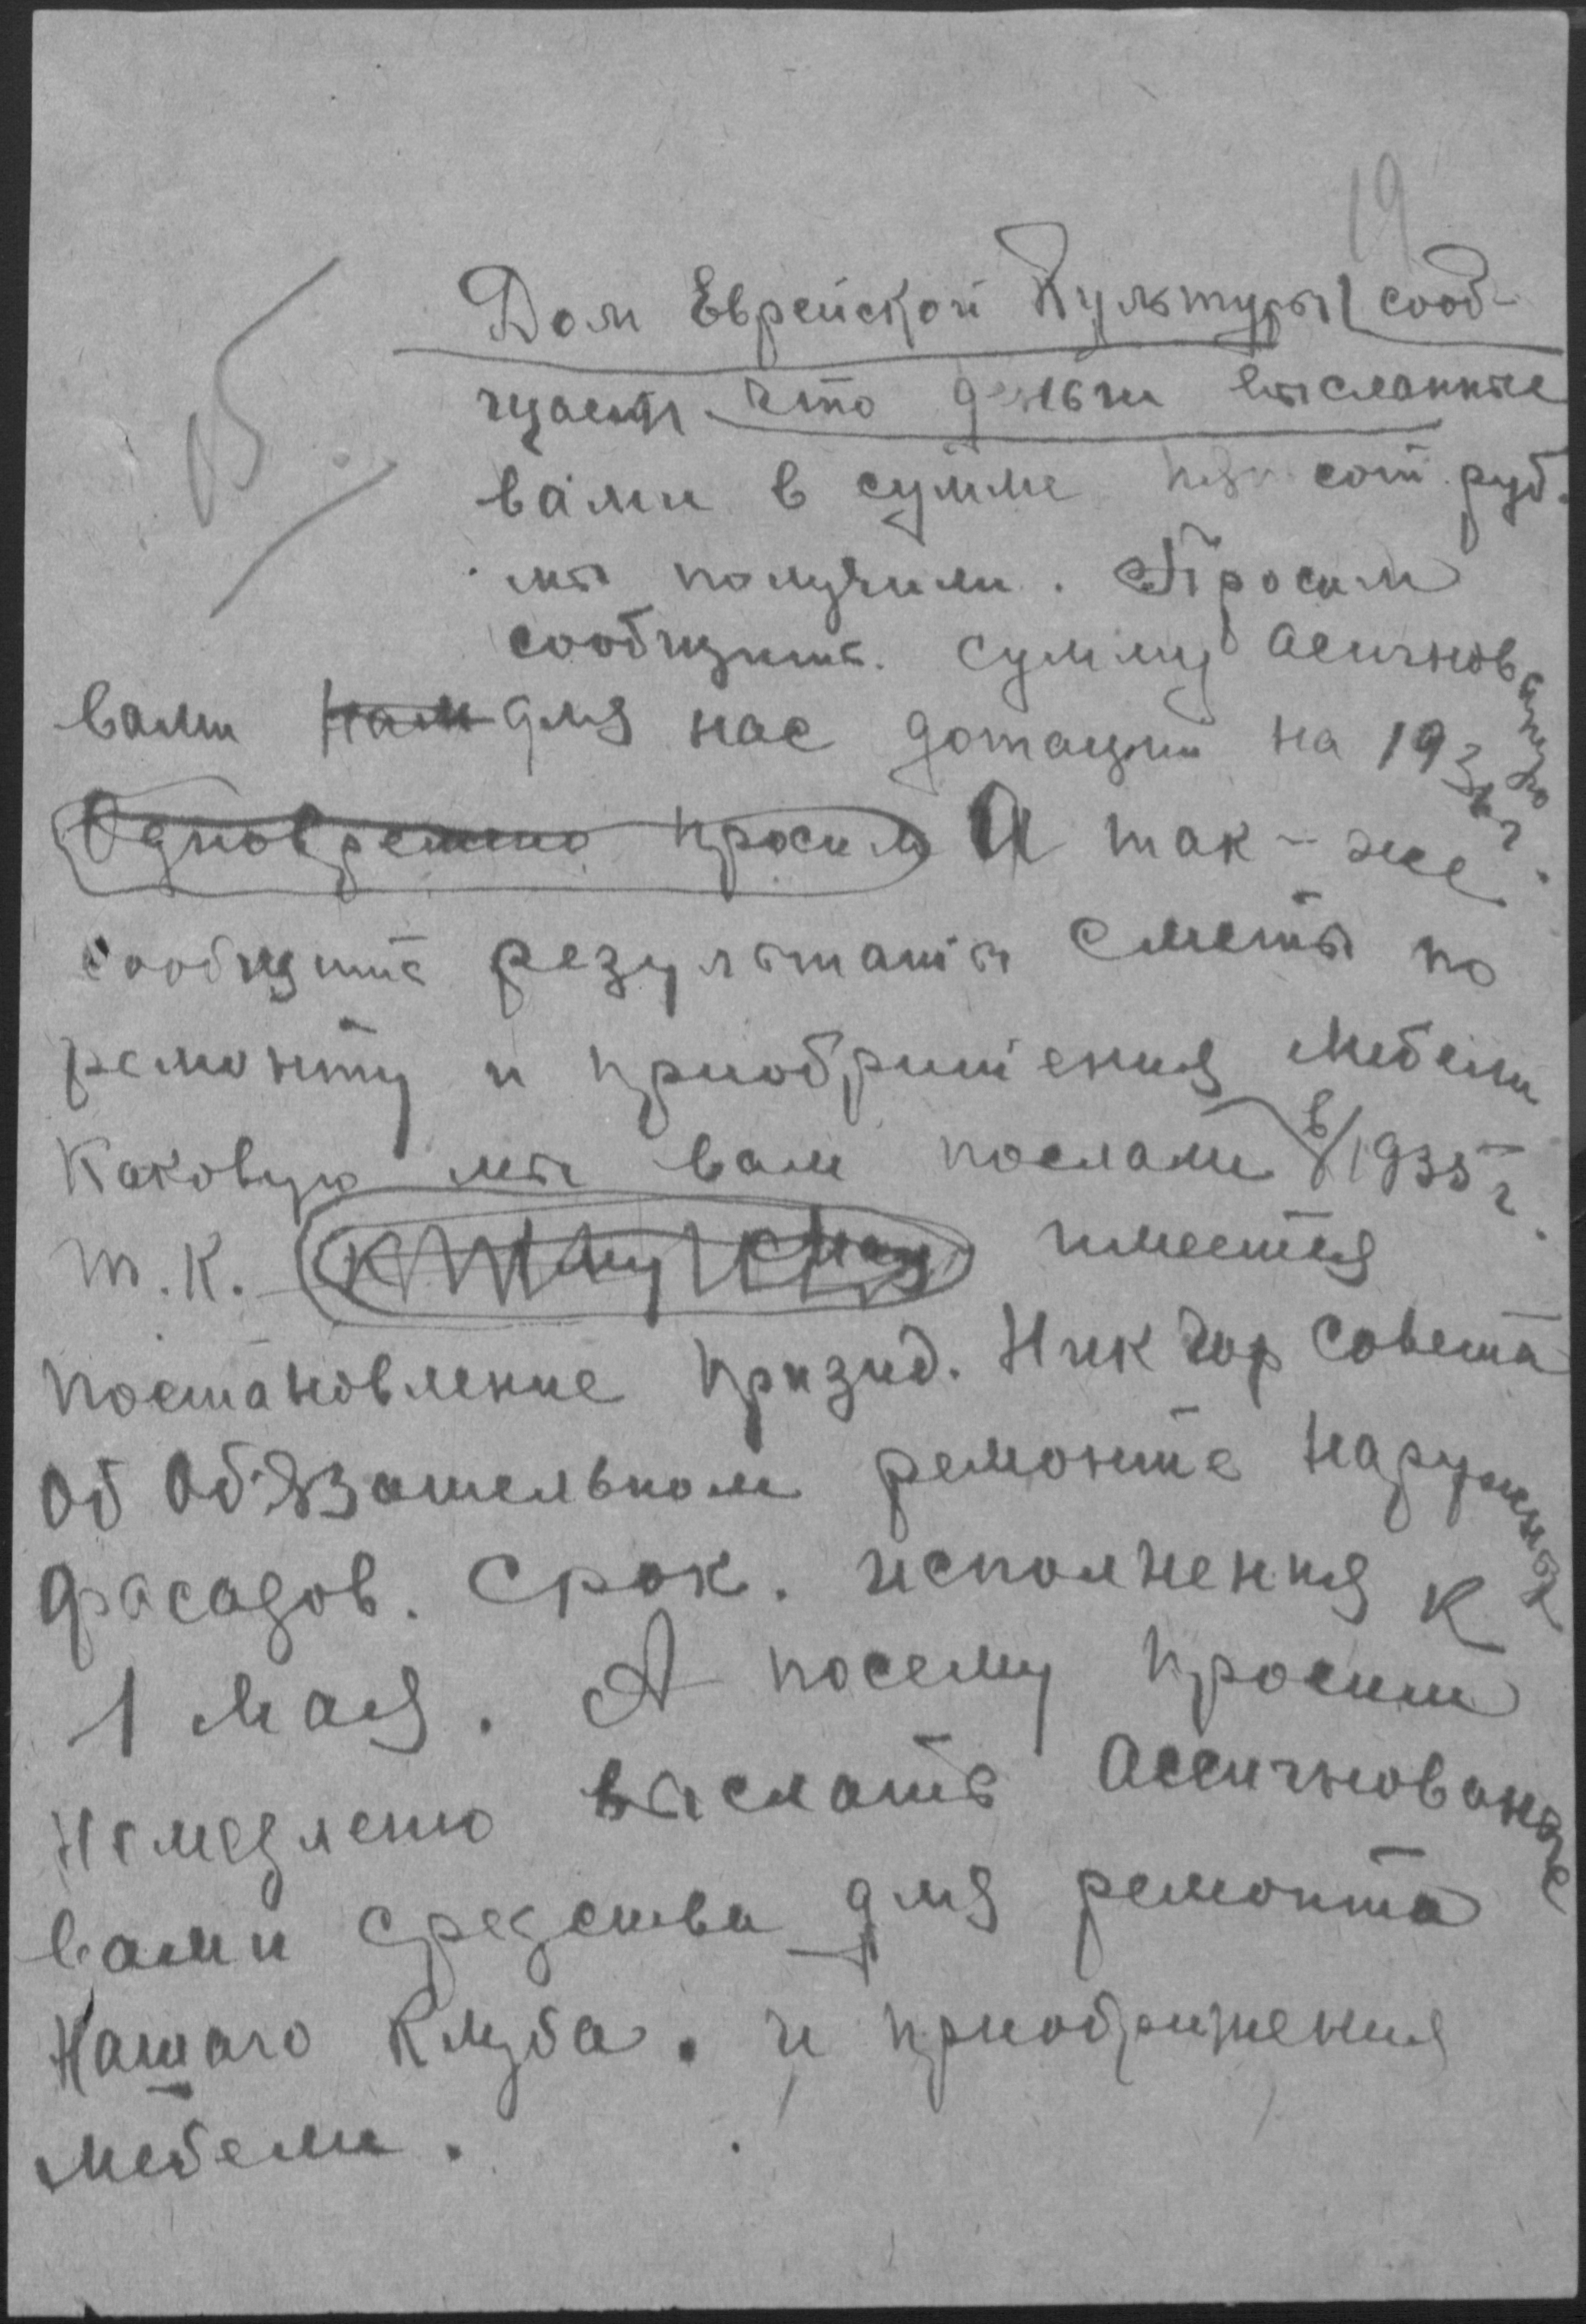 19
Дом Еврейской Культуры сооб-
щает что деньги высланные
вами в сумме пять сот руб.
мы получили. Просим
сообщить. сумму асигнованую
вами нам для нас дотации на 193 г.
Одновременно просим А так-же
сообщить результаты сметы по
ремонту и приобритения мебели
каковую мы вам послали в/1935 г.
т.к. имеется
постановление призид. Ник Гор Совета
об обязательном ремонте наружных
фасадов. Срок. исполнения к
1 мая. А посему просим
немедлено выслать ассигнованые
вами средства для ремонта
Нашаго Клуба. и приобритения
мебели.